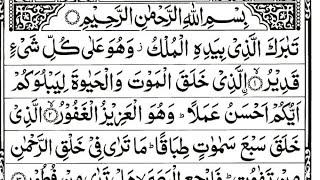 بِسْمِ اللّٰهِ الرَّحْمٰنِ الرَّحِيْمِ
تَبٰرَكَ الَّذِيْ بِيَدِهِ الْمُلْكُ ز وَهُوَ عَلٰى كُلِّ شَيْءٍ
قَدِيْرُ ۨ ۝١ الَّذِيْ خَلَقَ الْمَوْتَ وَالْحَيٰوةَ لِيَبْلُوَكُمْ
اَيُّكُمْ اَحْسَنُ عَمَلًا ط وَهُوَ الْعَزِيْزُ الْغَفُوْرُ ۝٢ الَّذِيْ
خَلَقَ سَبْعَ سَمٰوٰتٍ طِبَاقًا ط مَا تَرٰى فِيْ خَلْقِ الرَّحْمٰنِ
مِنْ تَفٰوُتٍ ط فَارْجِعِ الْبَصَرَ لا هَلْ تَرٰى مِنْ فُطُوْرٍ ۝٣